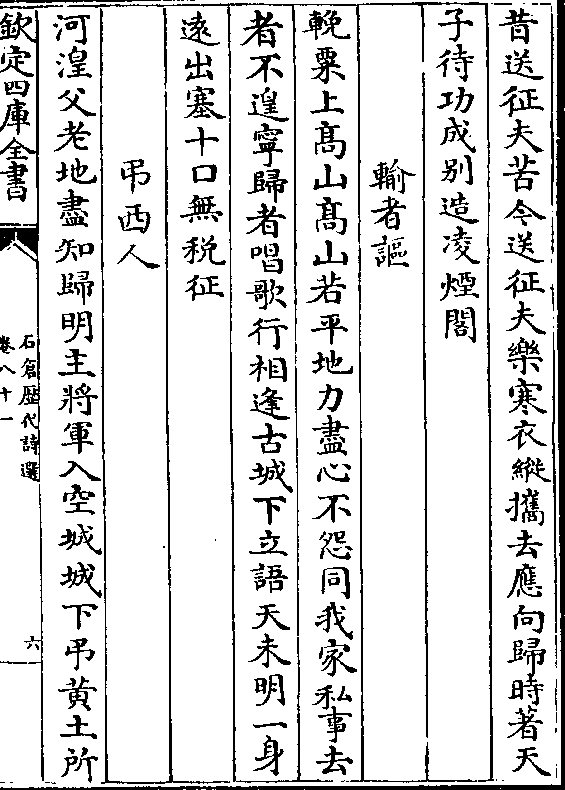 昔送征夫苦今送征夫樂寒衣縱攜去應向歸時著天
子待功成别造凌煙閣
輸者謳
輓粟上髙山髙山若平地力盡心不怨同我家私事去
者不遑寧歸者唱歌行相逢古城下立語天未明一身
遠出塞十口無税征
弔西人
河湟父老地盡知歸明主將軍入空城城下弔黄土所
欽定四庫全書
石倉歴代詩選
卷八十一
六